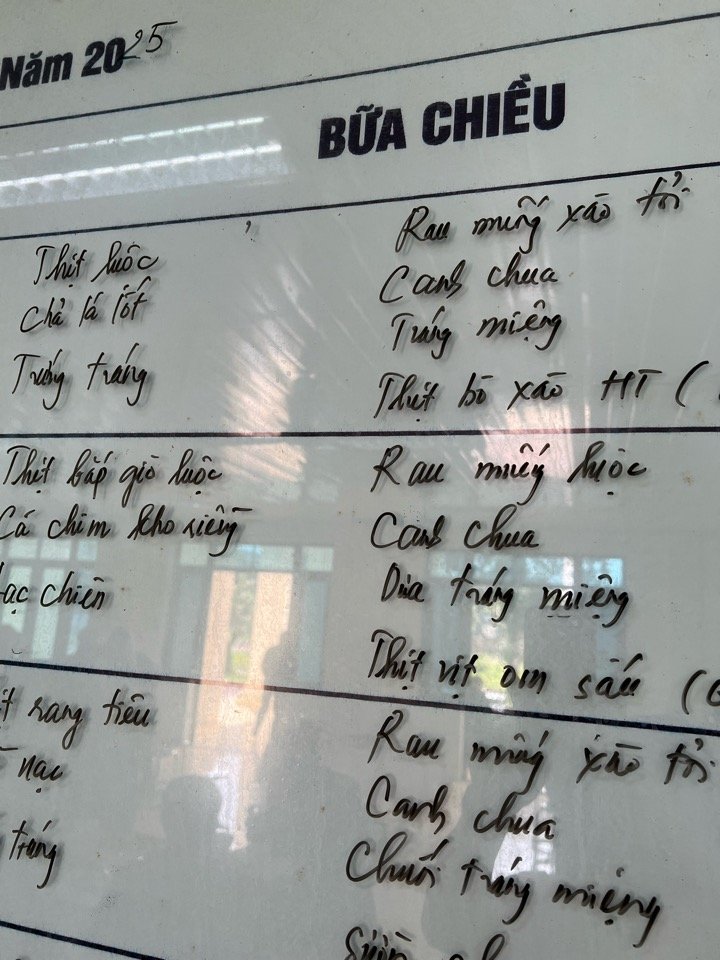 Năm 2025
BỮA CHIỀU
Thịt luộc
Chả lá lốt
Trứng tráng
Rau muống xào tỏi
Canh chua
Tráng miệng
Thịt bò xào HT (
Thịt bắp giò luộc
Cá chim kho riềng
Lạc chiên
Rau muống luộc
Canh chua
Dưa tráng miệng
Thịt vịt om sấu (
rang tiêu
nạc
tráng
Rau muống xào tỏi
Canh chua
Chuối tráng miệng